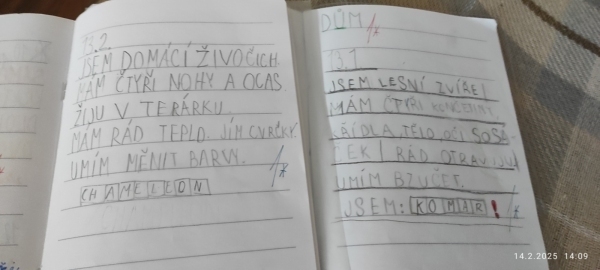 13.2.
JSEM DOMÁCÍ ŽIVOČICH.
MÁM ČTYŘI NOHY A OCAS.
ŽIJU V TERÁRKU.
MÁM RÁD TEPLO. JÍM CVRČKY.
UMÍM MĚNIT BARVY.
CHAMELEON
1*
DŮM 1*
13.1
JSEM LESNÍ ZVÍŘE
MÁM ČTYŘI KONČETINY
KŘÍDLA, TĚLO, OČI SOSÁ-
ČEK I RÁD OTRAVUJU
UMÍM BZUČET.
JSEM: KOMAR! 1*
14.2.2025 14:09